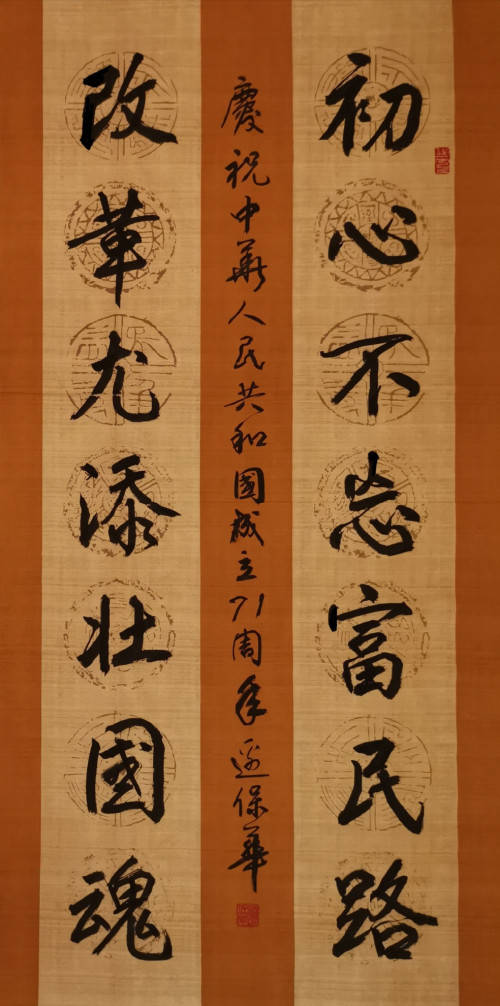 初心不忘富民路
改革尤添壮國魂
慶祝中華人民共和國成立71周年 邊保華